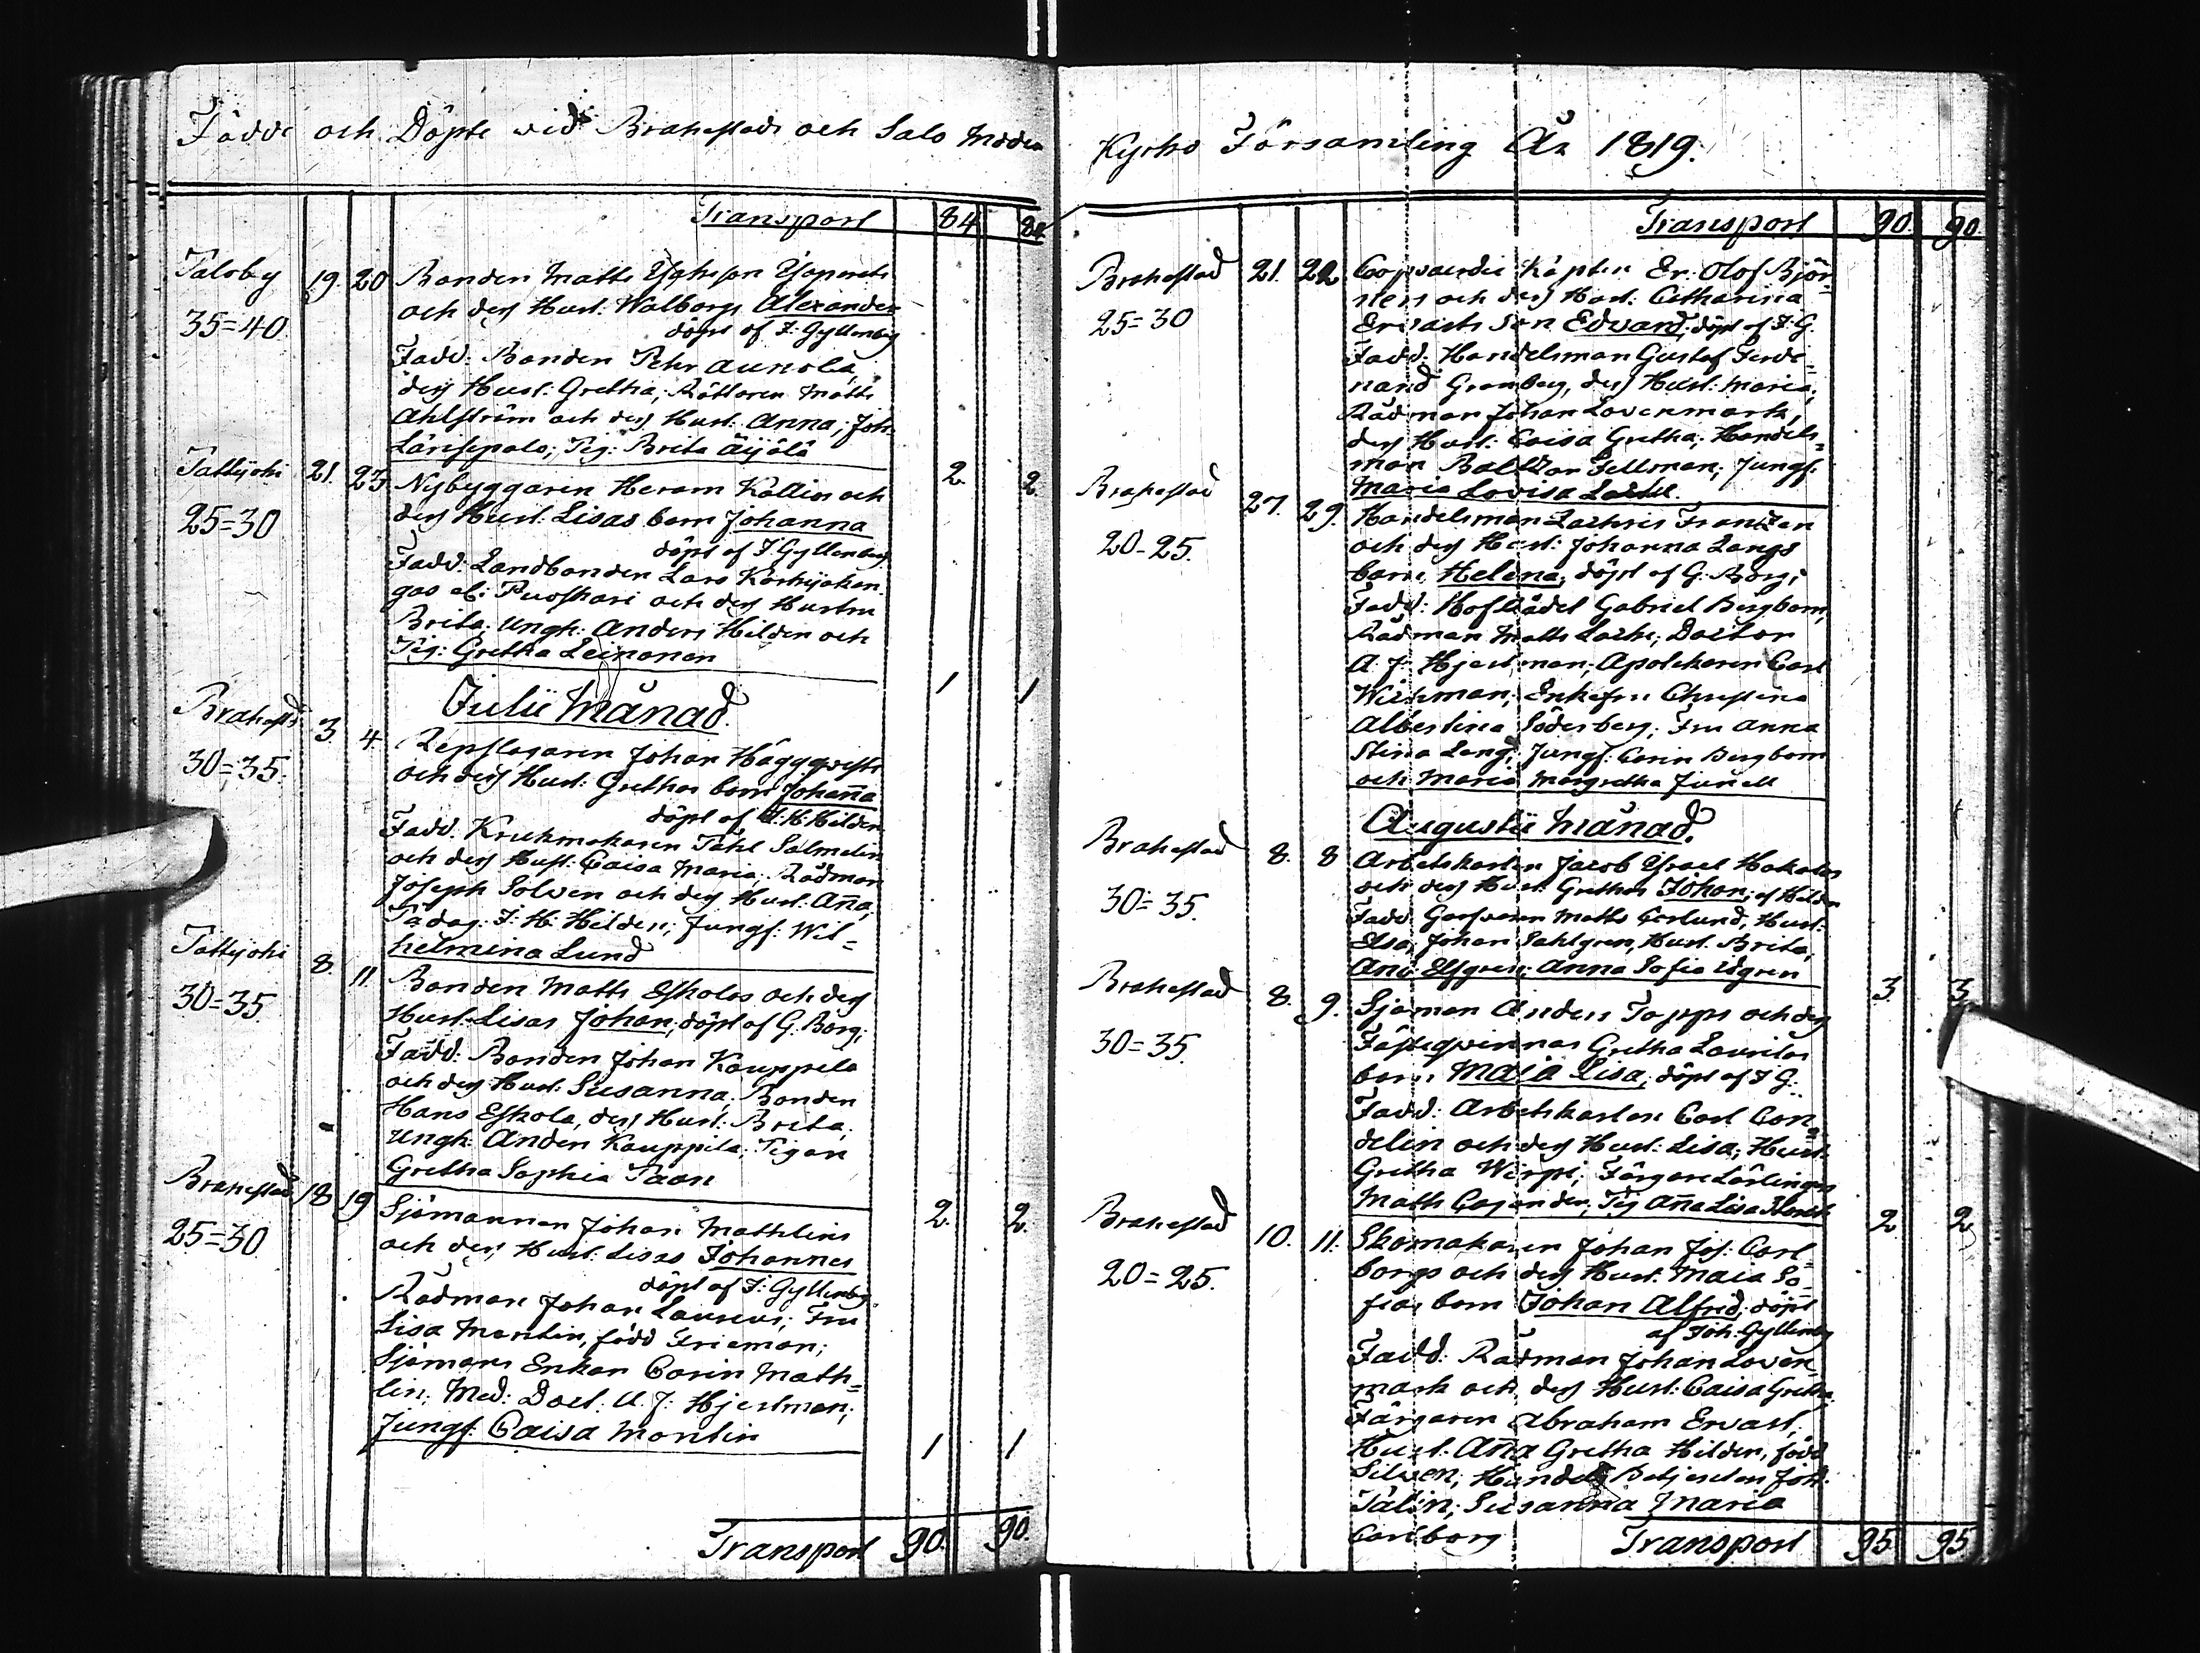 Födde och Döpte wid Brahestads och Salo Moder
Transport 84 84
Saloby 19. 20 Bonden Matts
35=40. och dess Hust: Walborgs Alexander
döpt af J: Gyllenberg
Fadd: Bonden Pehr Aunola,
dess Hust: Gretha, Rättaren Matts
Ahlström och dess Hust: Anna; Joh.
Pig: Brita Äijälä
2. 2.
Pattijoki 21. 23 Nybyggaren Heram Kallios och
25=30 dess Hust: Lisas barn Johanna
döpt af J Gyllenberg
Fadd: Landbonden Lars
och dess Hustru
Brita; Ungk: Anders Hilden och
Pig: Gretha Leinonen
1 1
Julii Månad.
Brahestad 3. 4. Repslagaren Johan Häggqvists
30=35. och dess Hust: Grethas barn Johanna
döpt af J: H: Hilden
Fadd. Krukmakaren Salmelin
och dess Hust: Caisa Maria, Rådman
Joseph Solven och dess Hust: Anna;
J: H: Hilden; Jungf: Wil=
helmina Lund
Pattijoki 8. 11 Bonden Matts Eskolas och dess
30=35. Hust: Lisas Johan; döpt af G. Borg;
Fadd: Bonden Johan Kauppila
och dess Hust: Susanna. Bonden
Hans Eskola, dess Hust: Brita;
Ungk: Anders Kauppila; Pigan
Gretha Sophia Paan
2. 2.
Brahestad 18 19 Sjömannen Johan Mathlins
25=30 och dess Hust: Lisas Johannes
döpt af J: Gyllenberg
Rådman Johan Laureus; Fru
Lisa Montin, född Frieman;
Sjömans Enkan Carin Math=
lin; Med: Doct: A. J: Hjertman;
Jungf: Caisa Montin
1 1
Transport 90. 90.
Kyrko Församling År 1819.
Transport 90. 90
Brahestad 21. 22 Coopvaerdie Kapten Er: Olof Björ=
25=30 ners och dess Hust: Catharina
Ervasts Son Edvard; döpt af J: G.
Fadd: Handelsman Gustaf Ferdi=
nand Granberg, dess Hust: Maria;
Rådman Johan Lovenmark,
dess Hust: Caisa Gretha; Handels=
man Baltzar Fellman; Jungf:
Maria Lovisa
Brahestad 27. 29. Handelsman Zachris Franzen
20-25. och dess Hust: Johanna Langs
barn Helena; döpt af G: Borg;
Fadd: Hof Rådet Gabriel Bergbom,
Rådman Matts Doctor
A. J: Hjertman, Apotekaren Carl
Enkefru Christina
Albertina Söderberg; Fru Anna
Stina Lang; Jungf: Carin Bergbom
och Maria Margretha Junell
Augustii Månad.
Brahestad 8. 8 Arbetskarlen Jacob Israel Hakalas
30=35. och dess Hust: Grethas Johan; af Hilden
Fadd. Garfvaren Matts Hust:
Elsa; Johan Sahlgren, Hust. Brita,
And: Elfgren; Anna Sofia
3. 3.
Brahestad 8. 9. Sjöman Anders Topps och dess
30=35. Fästeqvinnas Gretha Lauritas
barn Maja Lisa; döpt af J G.
Fadd: Arbetskarlen Carl Con=
delin och dess Hust: Lisa; Hust:
Gretha Färgare Lärlingen
Matts Pig Anna Lisa
2. 2
Brahestad 10. 11. Skomakaren Johan Jos: Carl=
20=25. borgs och dess Hust: Maja So=
fias barn Johan Alfrid; döpt
af Joh: Gyllenberg
Fadd: Rådman Johan Loven=
mark och dess Hust: Caisa Gretha,
Färgaren Abraham Ervast,
Hust: Anna Gretha Hilden, född
Silven; Handels Betjenten Joh:
Susanna Maria
Carlborg
Transport 95 95